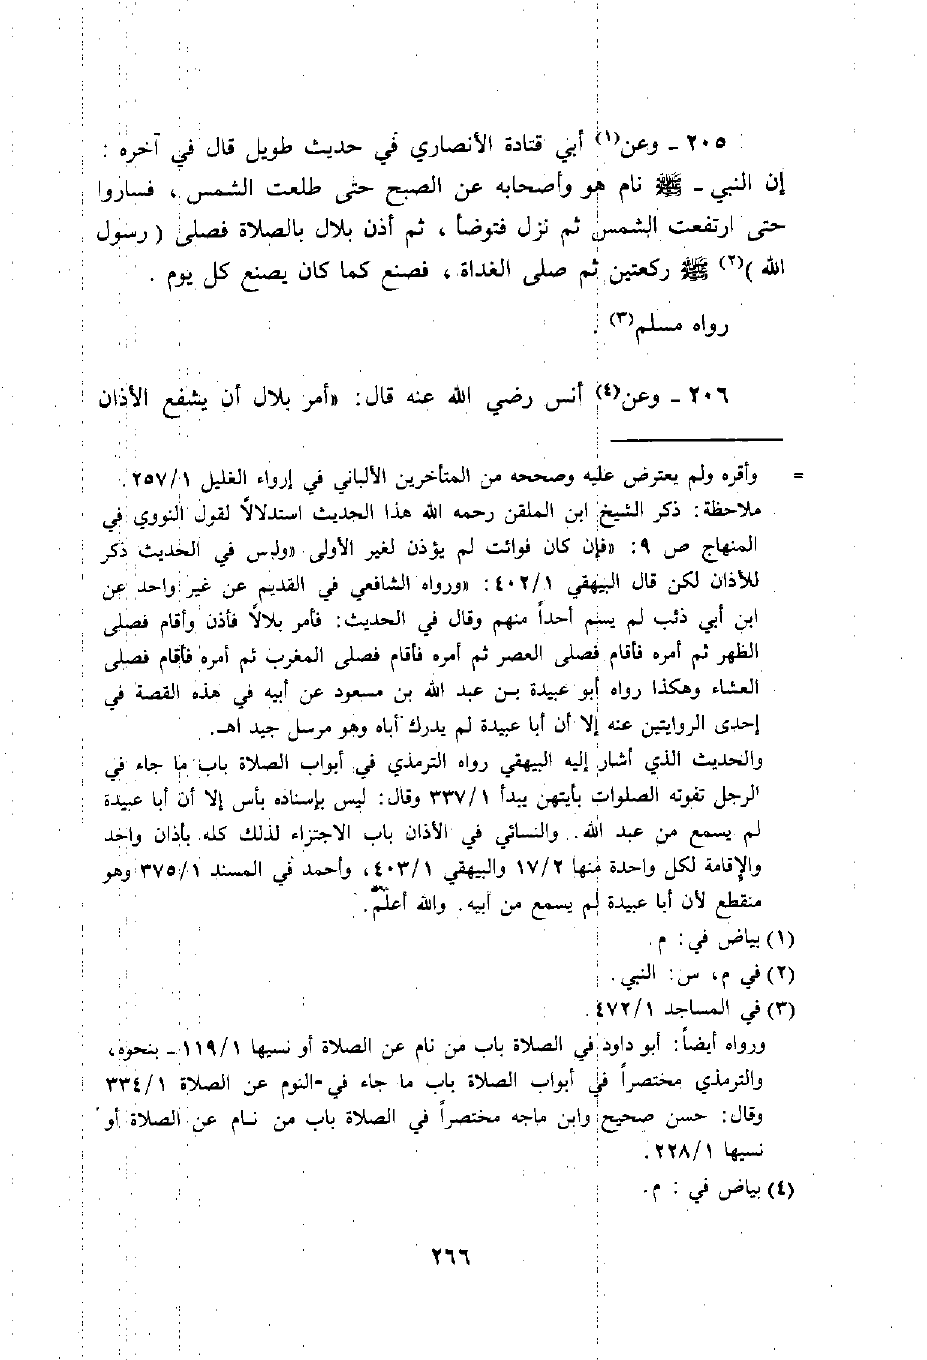 ٢٠٥ ـ وعن(١) أبي قتادة الأنصاري في حديث طويل قال في آخره :
إن النبي ـ ﷺ نام هو وأصحابه عن الصبح حتى طلعت الشمس ، فساروا
حتى ارتفعت الشمس ثم نزل فتوضأ ، ثم أذن بلال بالصلاة فصلى ( رسول
الله )(٢) ﷺ ركعتين ثم صلى الغداة ، فصنع كما كان يصنع كل يوم .
رواه مسلم(٣) .
٢٠٦ ـ وعن(٤) أنس رضي الله عنه قال: «أمر بلال أن يشفع الأذان
= وأقره ولم يعترض عليه وصححه من المتأخرين الألباني في إرواء الغليل ٢٥٧/١.
ملاحظة: ذكر الشيخ ابن الملقن رحمه الله هذا الحديث استدلالاً لقول النووي في
المنهاج ص ٩: «فإن كان فوائت لم يؤذن لغير الأولى «وليس في الحديث ذكر
للأذان لكن قال البيهقي ٤٠٢/١: «ورواه الشافعي في القديم عن غير واحد عن
ابن أبي ذئب لم يسم أحداً منهم وقال في الحديث: فأمر بلالاً فأذن وأقام فصلى
الظهر ثم أمره فأقام فصلى العصر ثم أمره فأقام فصلى المغرب ثم أمره فأقام فصلى
العشاء وهكذا رواه أبو عبيدة بـن عبد الله بن مسعود عن أبيه في هذه القصة في
إحدى الروايتين عنه إلا أن أبا عبيدة لم يدرك أباه وهو مرسل جيد اهـ.
والحديث الذي أشار إليه البيهقي رواه الترمذي في أبواب الصلاة باب ما جاء في
الرجل تفوته الصلوات بأيتهن يبدأ ٣٣٧/١ وقال: ليس بإسناده بأس إلا أن أبا عبيدة
لم يسمع من عبد الله. والنسائي في الأذان باب الاجتزاء لذلك كله بأذان واحد
والإقامة لكل واحدة منها ١٧/٢ والبيهقي ٤٠٣/١، وأحمد في المسند ٣٧٥/١ وهو
منقطع لأن أبا عبيدة لم يسمع من أبيه. والله أعلم.
(١) بياض في: م.
(٢) في م، س: النبي.
(٣) في المساجد ٤٧٢/١.
ورواه أيضاً: أبو داود في الصلاة باب من نام عن الصلاة أو نسيها ١١٩/١ ـ بنحوه،
والترمذي مختصراً في أبواب الصلاة باب ما جاء في النوم عن الصلاة ٣٣٤/١
وقال: حسن صحيح وابن ماجه مختصراً في الصلاة باب من نـام عن الصلاة أو
نسيها ٢٢٨/١.
(٤) بياض في : م.
٢٦٦